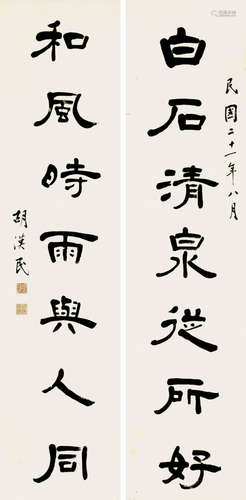 民国二十一年八月
白石清泉從所好
和風時雨與人同
胡漢民